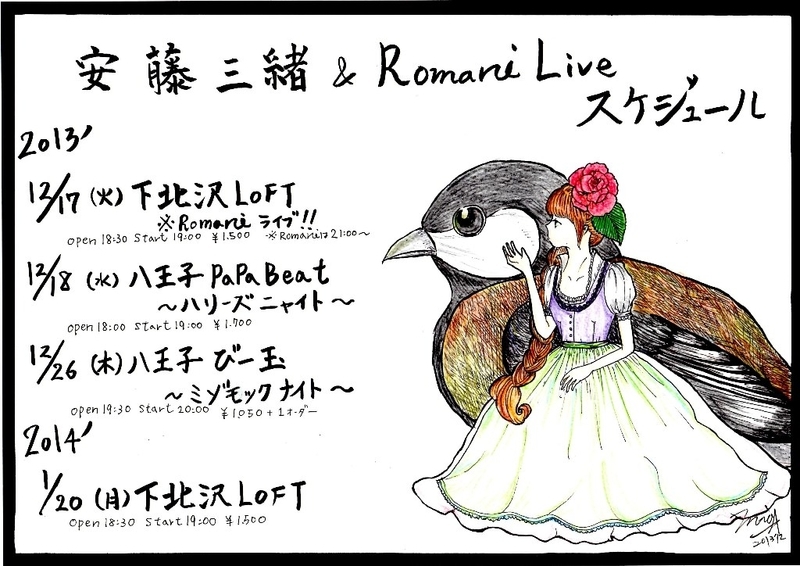 安藤三緒 & Romani Live
スケジュール
2013'
12/17 (火) 下北沢 LOFT
※Romani ライブ!!
open 18:30 start 19:00 ¥1.500 ※Romaniは21:00〜
12/18 (水) 八王子 PaPaBeat
〜ハリーズ ニャイト〜
open 18:00 start 19:00 ¥1.700
12/26 (木) 八王子 びー玉
〜ミゾモック ナイト〜
open 19:30 start 20:00 ¥1050+1オーダー
2014'
1/20 (月) 下北沢 LOFT
open 18:30 start 19:00 ¥1.500